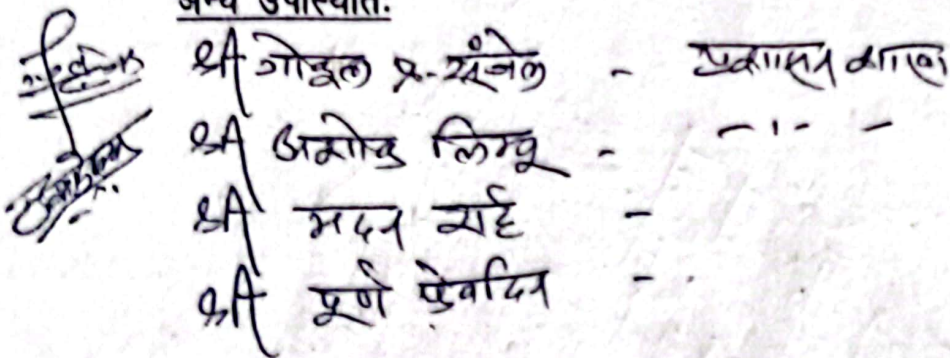 अन्य उपस्थिति:
श्री गोकुल प्र. संजेल - प्रशासन शाखा
श्री अशोक लिम्बू - -॥- -
श्री मदन राई -
श्री पूर्ण -